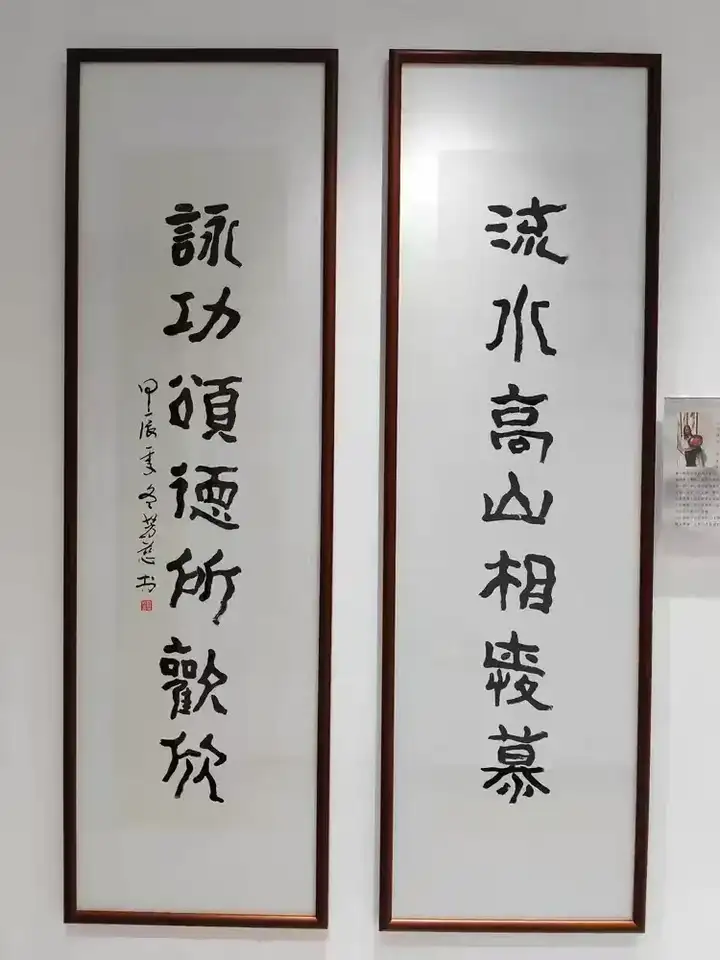 流水高山相慕
詠功頌德所歡欣
甲辰年冬书